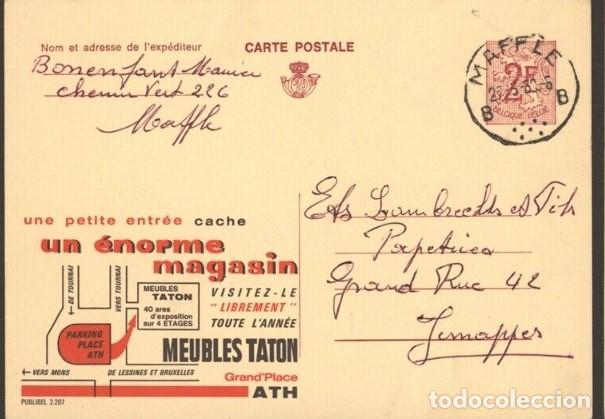 Nom et adresse de l'expéditeur
CARTE POSTALE
Bonenfant Maurice
chemin Vert 226
Maffle
MAFFLE
B B
2F
BELGIQUE BELGIË
Ets Lambrechts et Fils
Papeteries
Grand Rue 42
Jemappes
une petite entrée cache
un énorme
magasin
← DE TOURNAI
VERS TOURNAI
MEUBLES
TATON
40 ares
d'exposition
sur 4 ÉTAGES
PARKING
PLACE
ATH
← VERS MONS
DE LESSINES ET BRUXELLES
VISITEZ-LE
"LIBREMENT"
TOUTE L'ANNÉE
MEUBLES TATON
Grand'Place
ATH
PUBLIBEL 2.207
todocoleccion